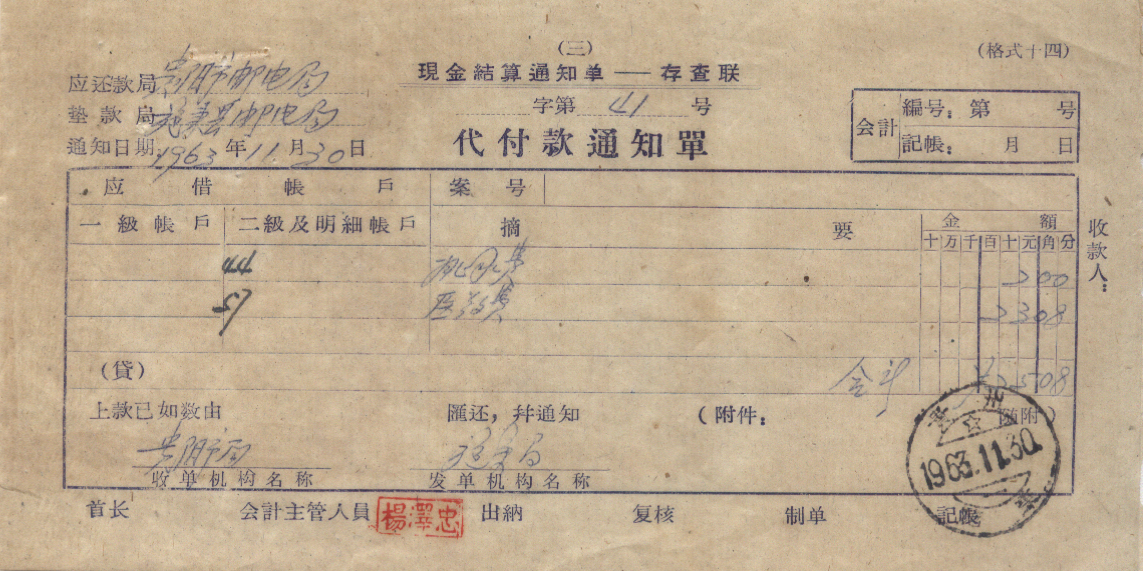 (三)
(格式十四)
現金結算通知单——存查联
应还款局 贵阳市邮电局
字第 41 号
垫款局 施秉县邮电局
会計 編号：第 号
記帳： 月 日
通知日期 1963年11月30日
代付款通知單
应借帳戶 案号
一級帳戶 二級及明細帳戶 摘要 金額
十万千百十元角分
收款人：
44 200
51 医药费 2308
(貸) 合计 ¥2508
上款已如数由 匯还，幷通知 (附件： 随附)
贵阳市局 施秉局
收单机构名称 发单机构名称
贵州
1963.11.30.
首长 会計主管人員 楊澤忠 出納 复核 制单 記帳